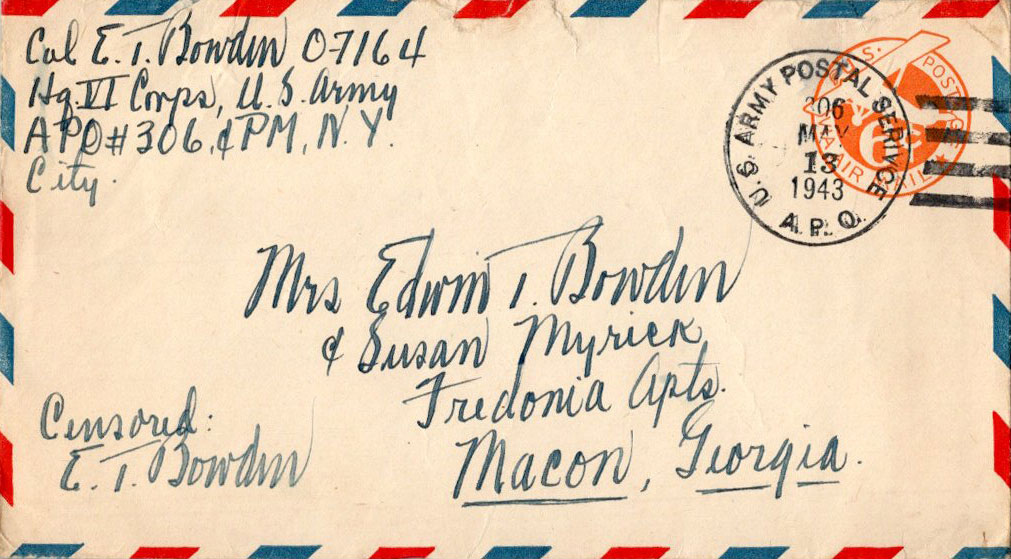 Col E. T. Bowden 0-7164
Hq. VI Corps, U. S. Army
APO # 306, ¢ PM, N. Y.
City.
U. S. ARMY POSTAL SERIVCE
306
MAY
13
1943
A. P. O.
U.S. POSTAGE
6c
VIA AIR MAIL
Mrs Edwin T. Bowden
¢ Susan Myrick
Fredonia Apts.
Macon, Georgia.
Censored:
E. T. Bowden